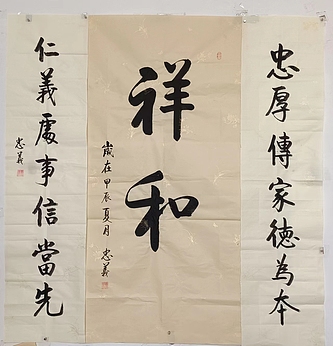 忠厚傳家德為本
祥和
歲在甲辰夏月 忠義
仁義處事信當先
忠義